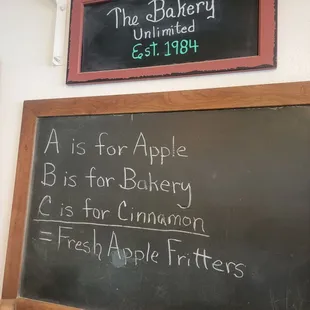 The Bakery
Unlimited
Est. 1984
A is for Apple
B is for Bakery
C is for Cinnamon
= Fresh Apple Fritters